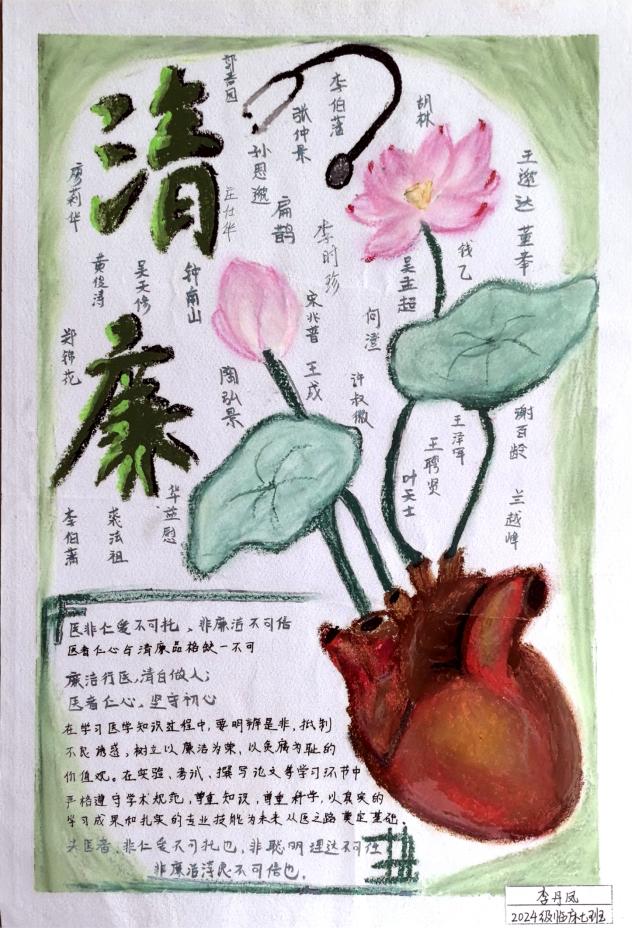 清
廉
郭春园
李伯藩
胡林
张仲景
孙思邈
王逊达
董奉
廖莉华
庄仕华
扁鹊
李时珍
钱乙
吴孟超
黄俊涛
吴天修
钟南山
宋兆普
何澄
郑锦花
陶弘景
王成
许叔微
谢百龄
王泽军
王聘贤
叶天士
兰越峰
华益慰
裘法祖
李伯藩
医非仁爱不可托、非廉洁不可信
医者仁心与清廉品格缺一不可
廉洁行医,清白做人;
医者仁心,坚守初心
在学习医学知识过程中,要明辨是非,抵制
不良诱惑,树立以廉洁为荣,以贪腐为耻的
价值观。在实验、考试、撰写论文等学习环节中
严格遵守学术规范,尊重知识,尊重科学,以真实的
学习成果和扎实的专业技能为未来从医之路奠定基础。
夫医者,非仁爱不可托也,非聪明理达不可任
非廉洁淳良不可信也。
李丹凤
2024级临床七班